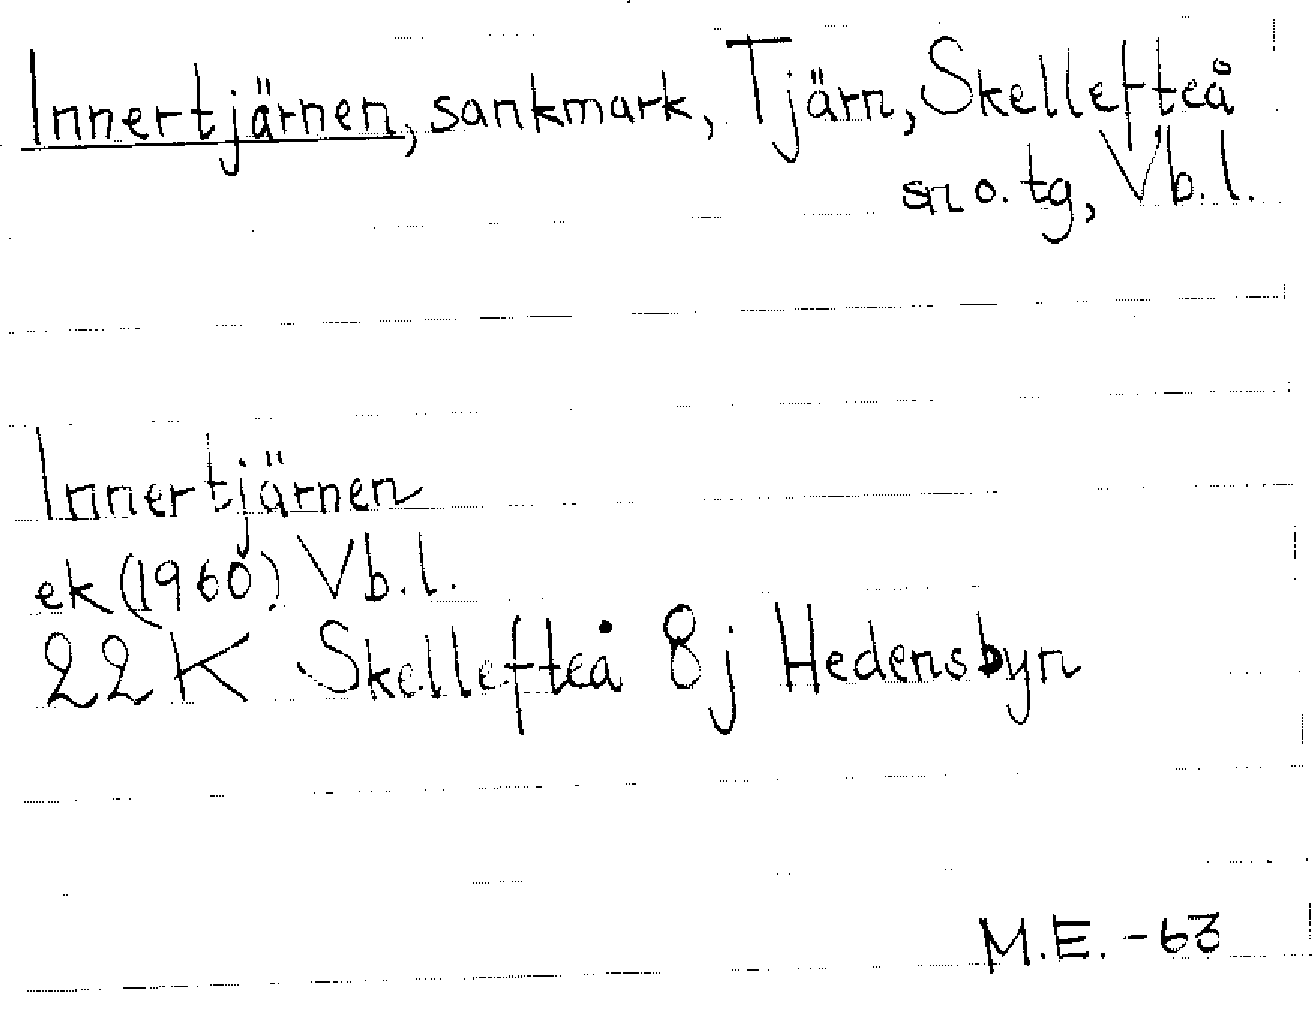 Innertjärnen, sankmark, Tjärn, Skellefteå
sn o. tg, Vb. l.
Innertjärnen
ek (1960) Vb. l.
22 K Skellefteå 8j Hedensbyn
M.E. -63